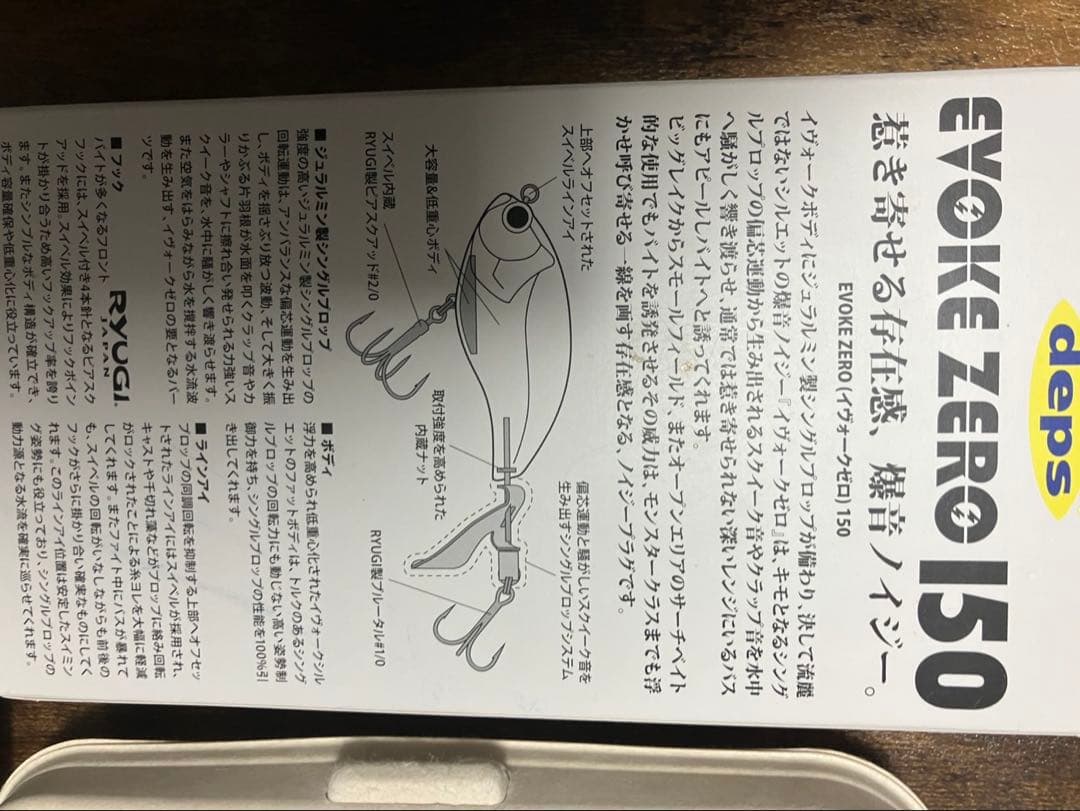 deps
EVOKE ZERO 150
惹き寄せる存在感、爆音ノイジー。
EVOKE ZERO (イヴォークゼロ) 150
イヴォークボディにジュラルミン製シングルプロップが備わり、決して流麗
ではないシルエットの爆音ノイジー『イヴォークゼロ』は、キモとなるシング
ルプロップの偏芯運動から生み出されるスクイーク音やクラップ音を水中
へ騒がしく響き渡らせ、通常では惹き寄せられない深いレンジにいるバス
にもアピールしバイトへと誘ってくれます。
ビッグレイクからスモールフィールド、またオープンエリアのサーチベイト
的な使用でもバイトを誘発させるその威力は、モンスタークラスまでも浮
かせ呼び寄せる一線を画す存在感となる、ノイジープラグです。
上部へオフセットされた
スイベルラインアイ
偏芯運動と騒がしいスクイーク音を
生み出すシングルプロップシステム
大容量&低重心ボディ
取付強度を高められた
内蔵ナット
スイベル内蔵
RYUGI製ピアスクアッド#2/0
RYUGI製ブルータル#1/0
■ジュラルミン製シングルプロップ
強度の高いジュラルミン製シングルプロップの
回転運動は、アンバランスな偏芯運動を生み出
し、ボディを揺さぶり放つ波動、そして大きく振
りかぶる片羽根が水面を叩くクラップ音や力
ラーやシャフトに擦れ合い発せられる力強いス
クイーク音を、水中に騒がしく響き渡らせます。
また空気をはらみながら水を撹拌する水流波
動を生み出す、イヴォークゼロの要となるパー
ツです。
■フック
RYUGI
JAPAN
バイトが多くなるフロント
フックには、スイベル付き4本針となるピアスク
アッドを採用。スイベル効果によりフックポイン
トが掛かり合うため高いフックアップ率を誇り
ます。またシンプルなボディ構造が確立でき、
ボディ容量確保や低重心化に役立っています。
■ボディ
浮力を高められ低重心化されたイヴォークシル
エットのファットボディは、トルクのあるシング
ルプロップの回転力にも動じない高い姿勢制
御力を持ち、シングルプロップの性能を100%引
き出してくれます。
■ラインアイ
プロップの同調回転を抑制する上部へオフセッ
トされたラインアイにはスイベルが採用され、
キャストや千切れ藻などがプロップに絡み回転
がロックされたことによる糸ヨレを大幅に軽減
してくれます。またファイト中にバスが暴れて
も、スイベルの回転がいなしながらも前後の
フックがさらに掛かり合い確実なものにしてく
れます。このラインアイ位置は安定したスイミン
グ姿勢にも役立っており、シングルプロップの
動力源となる水流を確実に巡らせてくれます。